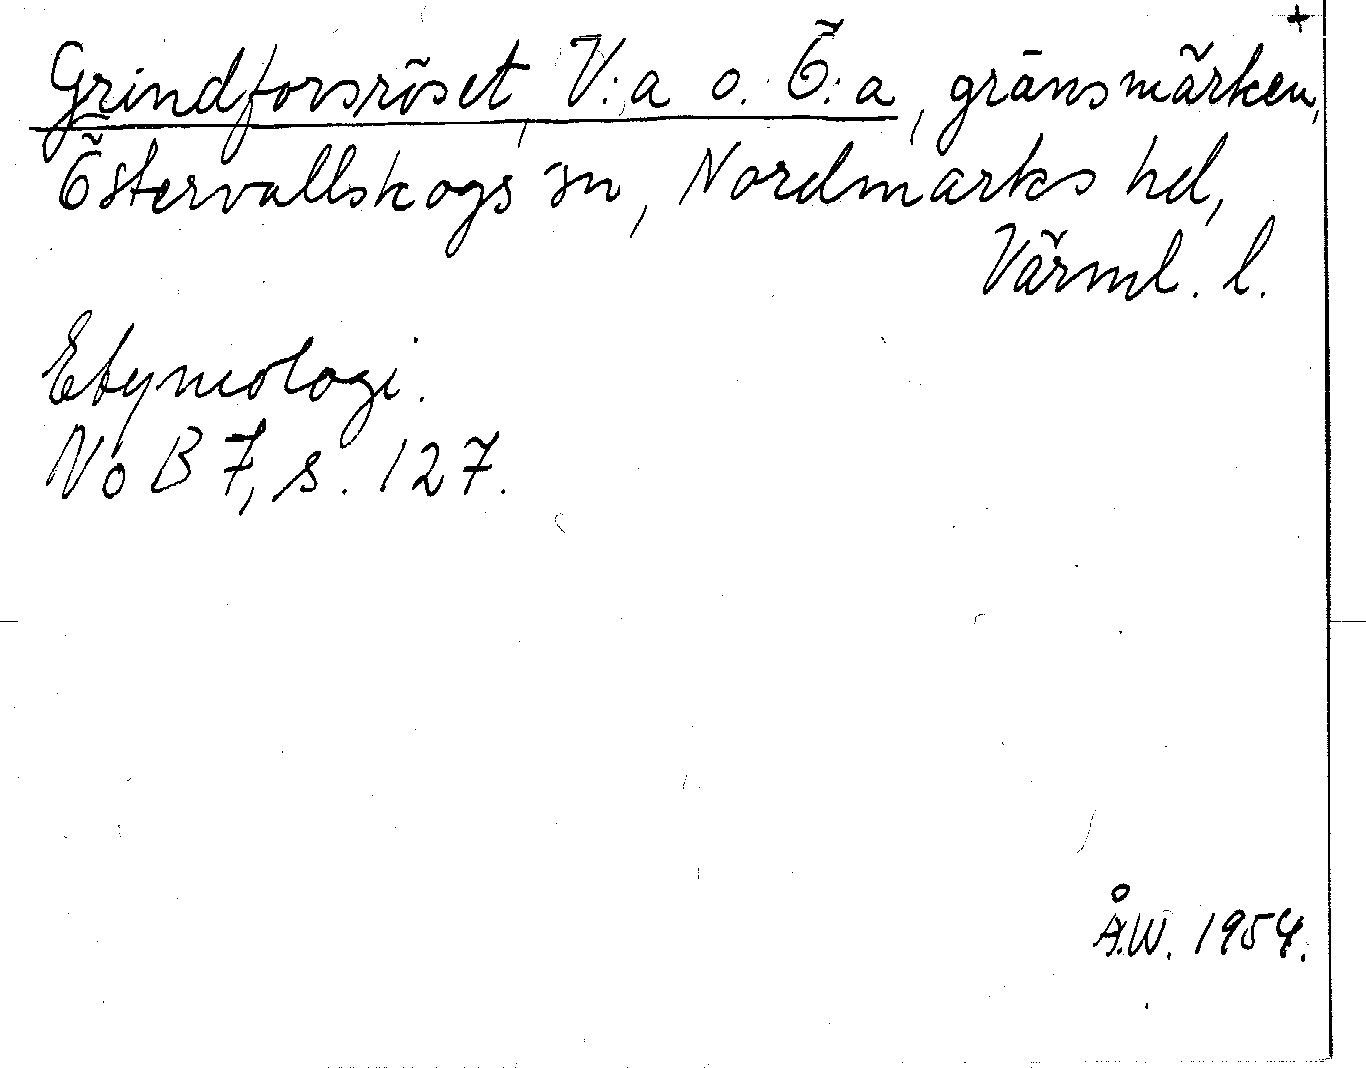 +
Grindforsröset, V:a o. Ö:a, gränsmärken,
Östervallskogs sn, Nordmarks hd,
Värml. l.
Etymologi.
NoB 7, s. 127.
Å.W. 1954.